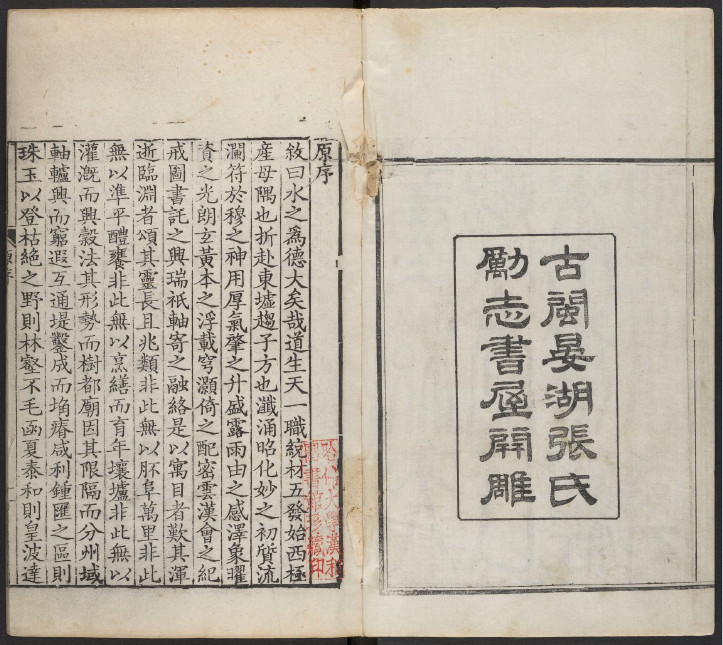 古閩晏湖張氏
勵志書屋開雕
原序
敘曰水之爲德大矣哉道生天一職統材五發始西極
産母隅也折赴東墟趨子方也瀸涌昭化妙之初質流
瀾符於穆之神用厚氣肇之升盛露雨由之感澤象曜
資之光朗玄黃本之浮載穹灝倚之配密雲漢會之紀
戒圖書託之興瑞祇軸寄之融絡是以寓目者歎其渾
逝臨淵者頌其靈長且兆類非此無以胚阜萬里非此
無以準平醴饔非此無以烹繕而育年壤壚非此無以
灌漑而興穀法其形勢而樹都廟因其限隔而分州域
軸轤興而窮遐互通堤鑿成而埆瘠咸利鍾匯之區則
珠玉以登枯絶之野則林壑不毛函夏泰和則皇波達
原序
哈佛大學漢和
圖書館珍藏印